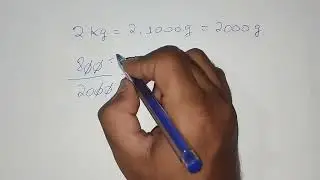 2 kg = 2.1000g = 2000 g
800 =
2000